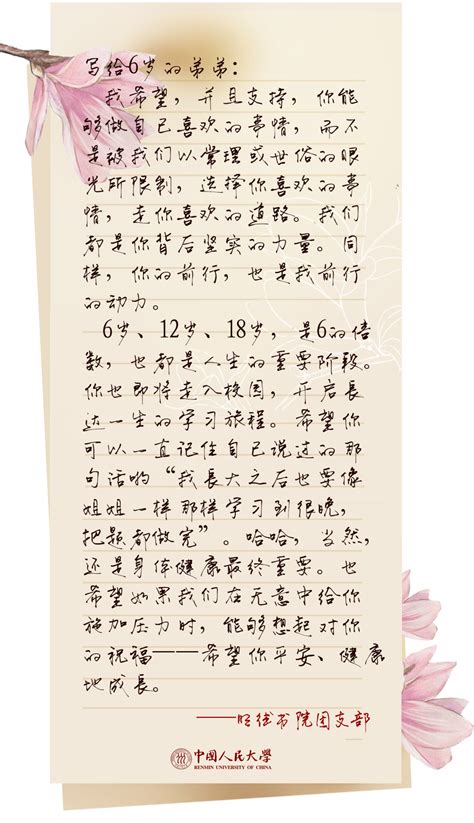 写给6岁的弟弟：
我希望，并且支持，你能
够做自己喜欢的事情，而不
是被我们以常理或世俗的眼
光所限制，选择你喜欢的事
情，走你喜欢的道路。我们
都是你背后坚实的力量。同
样，你的前行，也是我前行
的动力。
6岁、12岁、18岁，是6的倍
数，也都是人生的重要阶段。
你也即将走入校园，开启長
达一生的学习旅程。希望你
可以一直记住自己说过的那
句话哟“我長大之后也要像
姐姐一样那样学习到很晚，
把题都做完”。哈哈，当然，
还是身体健康最终重要。也
希望如果我们在无意中给你
施加压力时，能够想起对你
的祝福——希望你平安、健康
地成長。
——明德书院团支部
中國人民大學
RENMIN UNIVERSITY OF CHINA